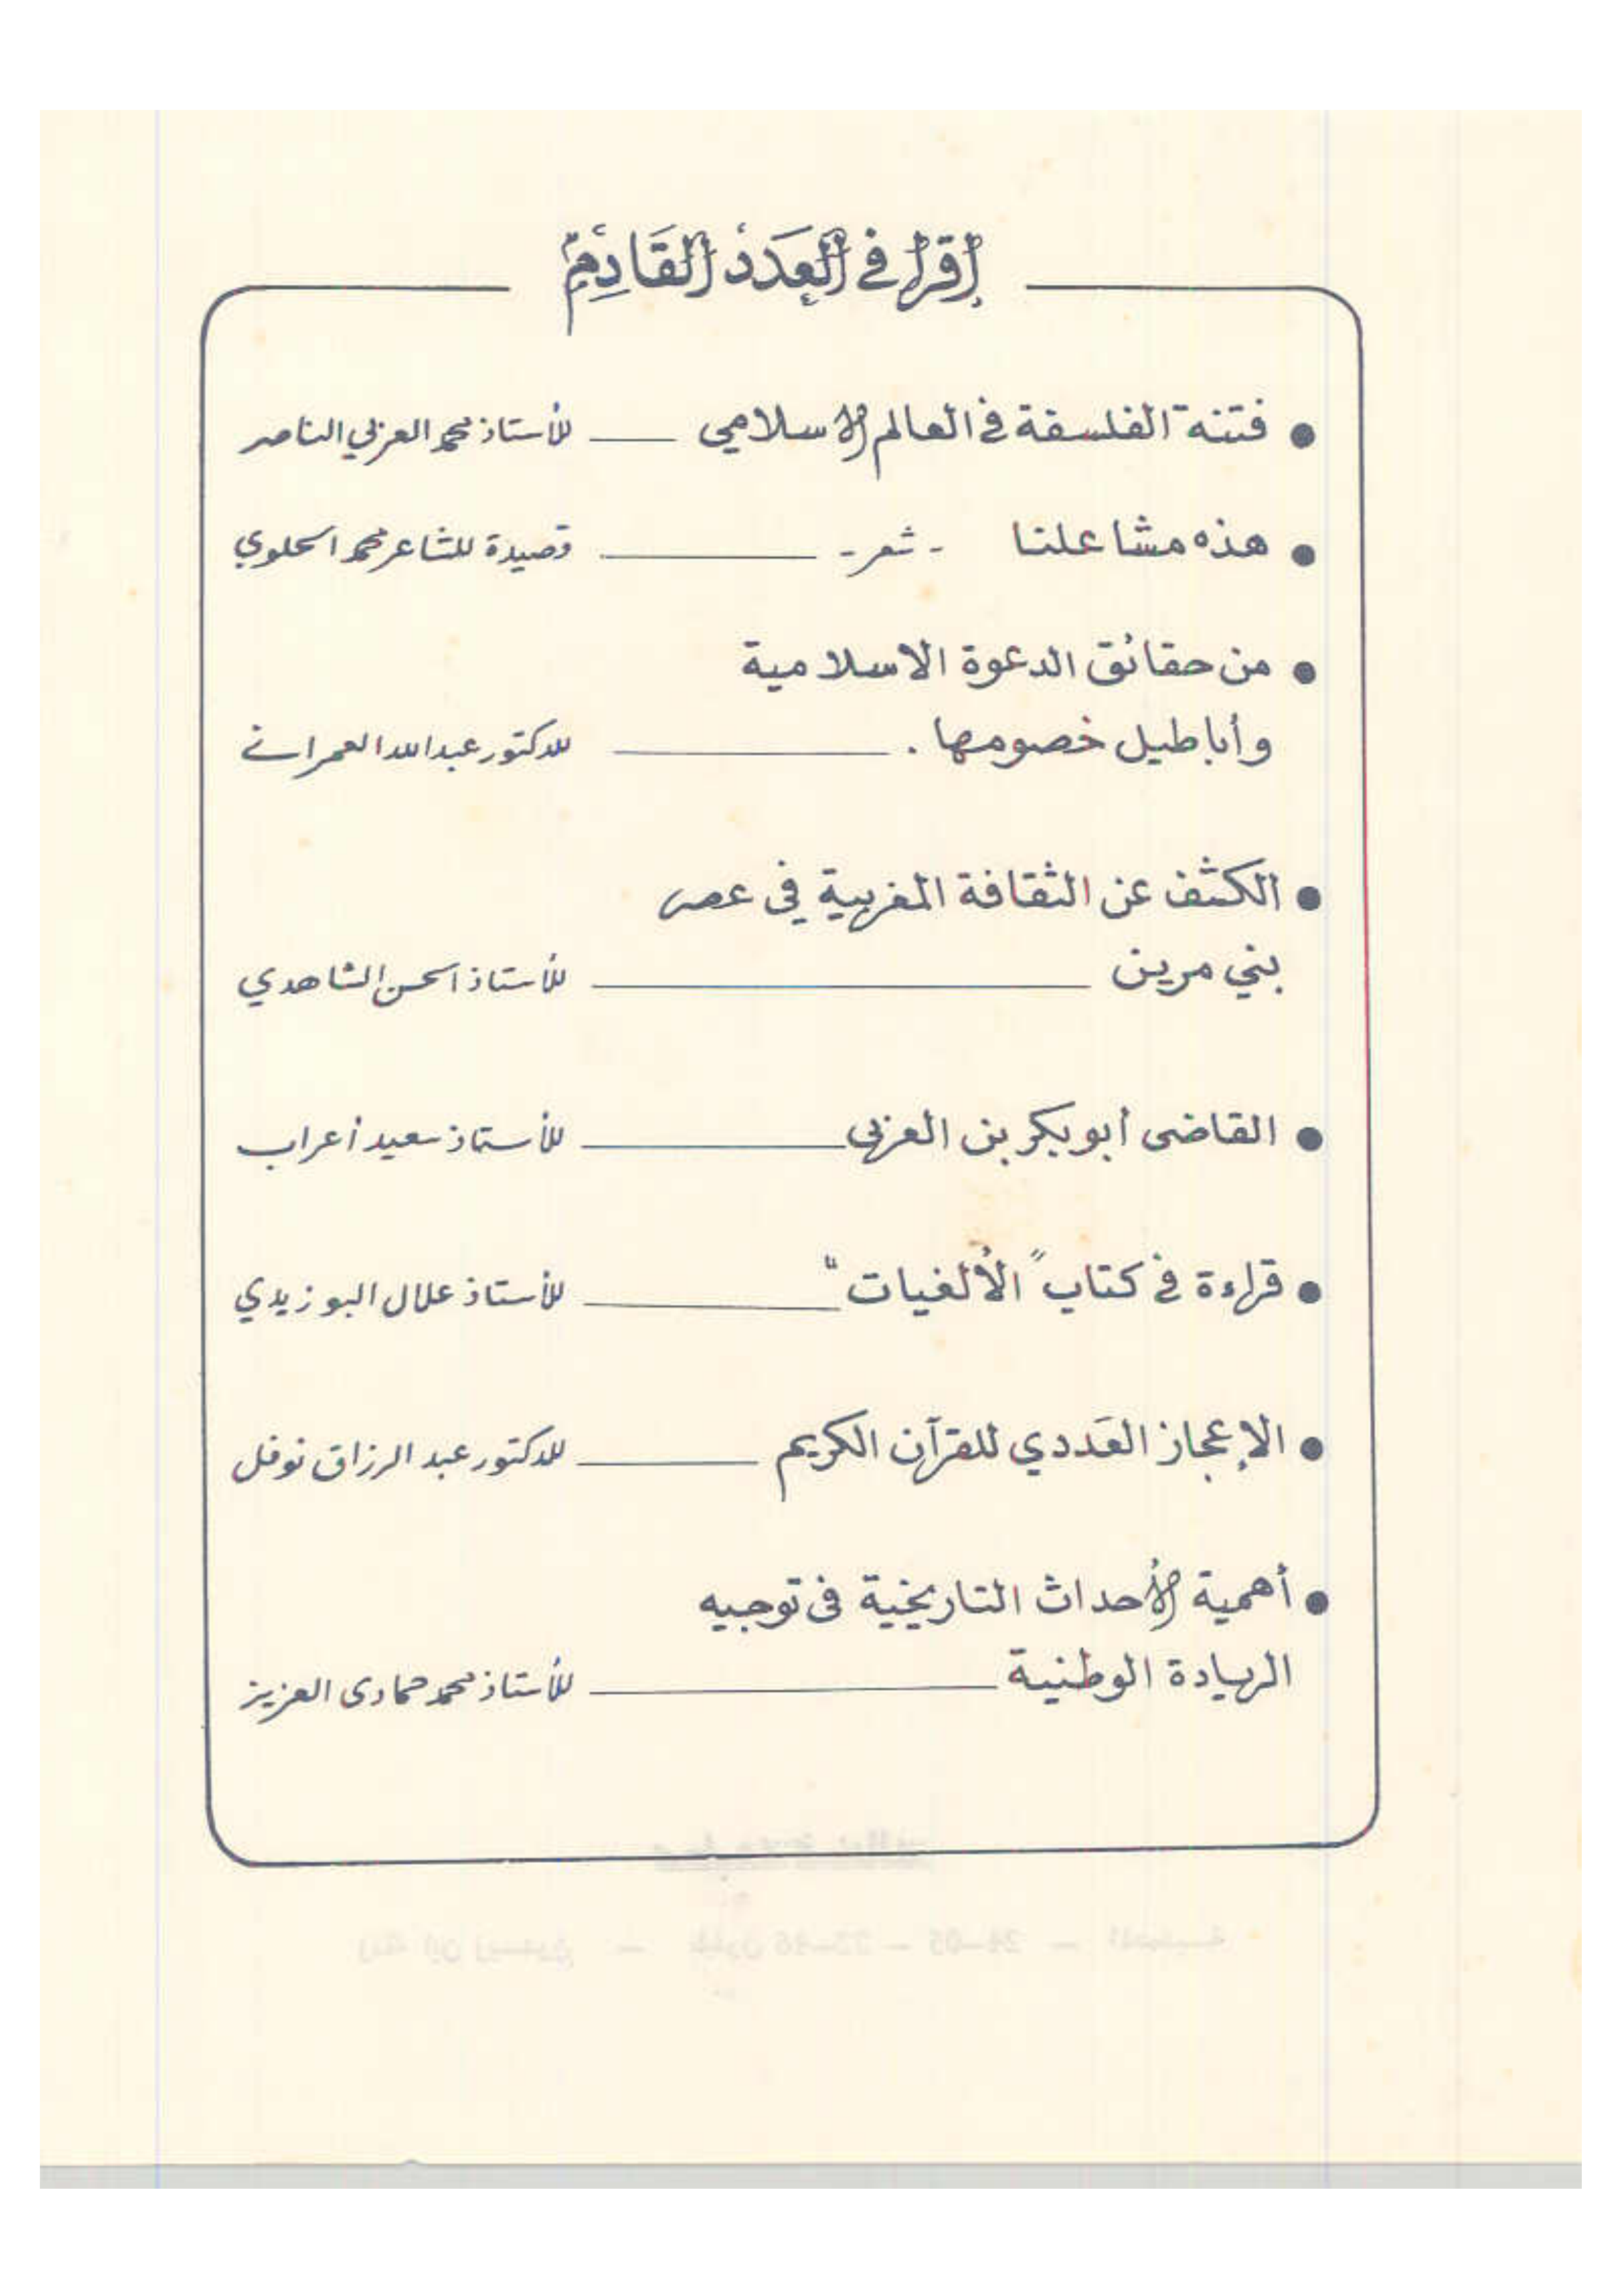 إقرأ في العدد القادم
● فتنة الفلسفة في العالم الاسلامي ___ للأستاذ محمد العربي الناصر
● هذه مشاعلنا - شعر - ___ قصيدة للشاعر محمد الحلوي
● من حقائق الدعوة الاسلامية
وأباطيل خصومها . ___ للدكتور عبدالله العمراني
● الكشف عن الثقافة المغربية في عصر
بني مرين ___ للأستاذ الحسن الشاهدي
● القاضى أبو بكر بن العربي ___ للأستاذ سعيد أعراب
● قراءة في كتاب "الألفيات" ___ للأستاذ علال البوزيدي
● الإعجاز العددي للقرآن الكريم ___ للدكتور عبد الرزاق نوفل
● أهمية الأحداث التاريخية في توجيه
الريادة الوطنية ___ للأستاذ محمد حمادى العزيز